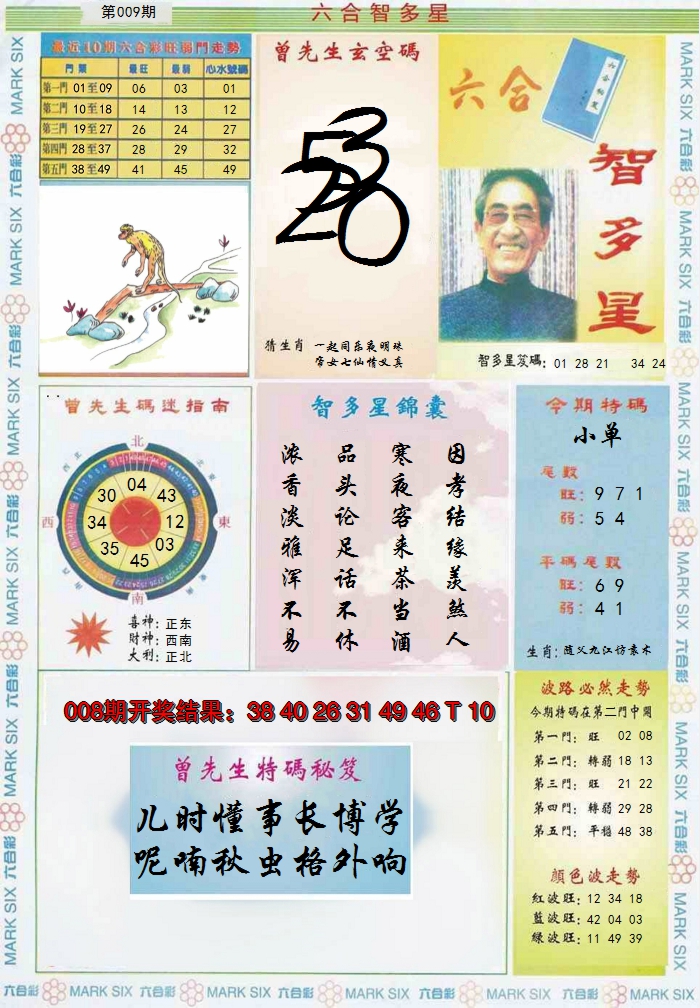 第009期
六合智多星
最近10期六合彩旺弱門走勢
門類 最旺 最弱 心水號碼
第一門 01至09 06 03 01
第二門 10至18 14 13 12
第三門 19至27 26 24 27
第四門 28至37 28 29 32
第五門 38至49 41 45 49
曾先生玄空碼
猜生肖 一起同乐夜明珠
帝女七仙情义真
六合
六合秘笈
智多星
智多星笈碼: 01 28 21 34 24
曾先生碼迷指南
北
西
東
南
04
43
12
03
45
35
34
30
喜神: 正东
财神: 西南
大利: 正北
智多星錦囊
因孝结缘羡煞人
寒夜客来茶当酒
品头论足话不休
浓香淡雅浑不易
今期特碼
小单
尾數
旺: 9 7 1
弱: 5 4
平碼尾數
旺: 6 9
弱: 4 1
生肖: 随父九江访袁术
008期开奖结果：38 40 26 31 49 46 T 10
曾先生特碼秘笈
儿时懂事长博学
呢喃秋虫格外响
波路必然走勢
今期特碼在第二門中開
第一門: 旺 02 08
第二門: 轉弱 18 13
第三門: 旺 21 22
第四門: 轉弱 29 28
第五門: 平穩 48 38
顏色波走勢
紅波旺: 12 34 18
藍波旺: 42 04 03
綠波旺: 11 49 39
MARK SIX 六合彩 MARK SIX 六合彩 MARK SIX 六合彩 MARK SIX 六合彩 MARK SIX 六合彩